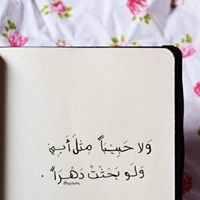 وَلا حَبِيبَاً مِثلَ أَبِي
وَلَو بَحَثتْ دَهْرَاً .